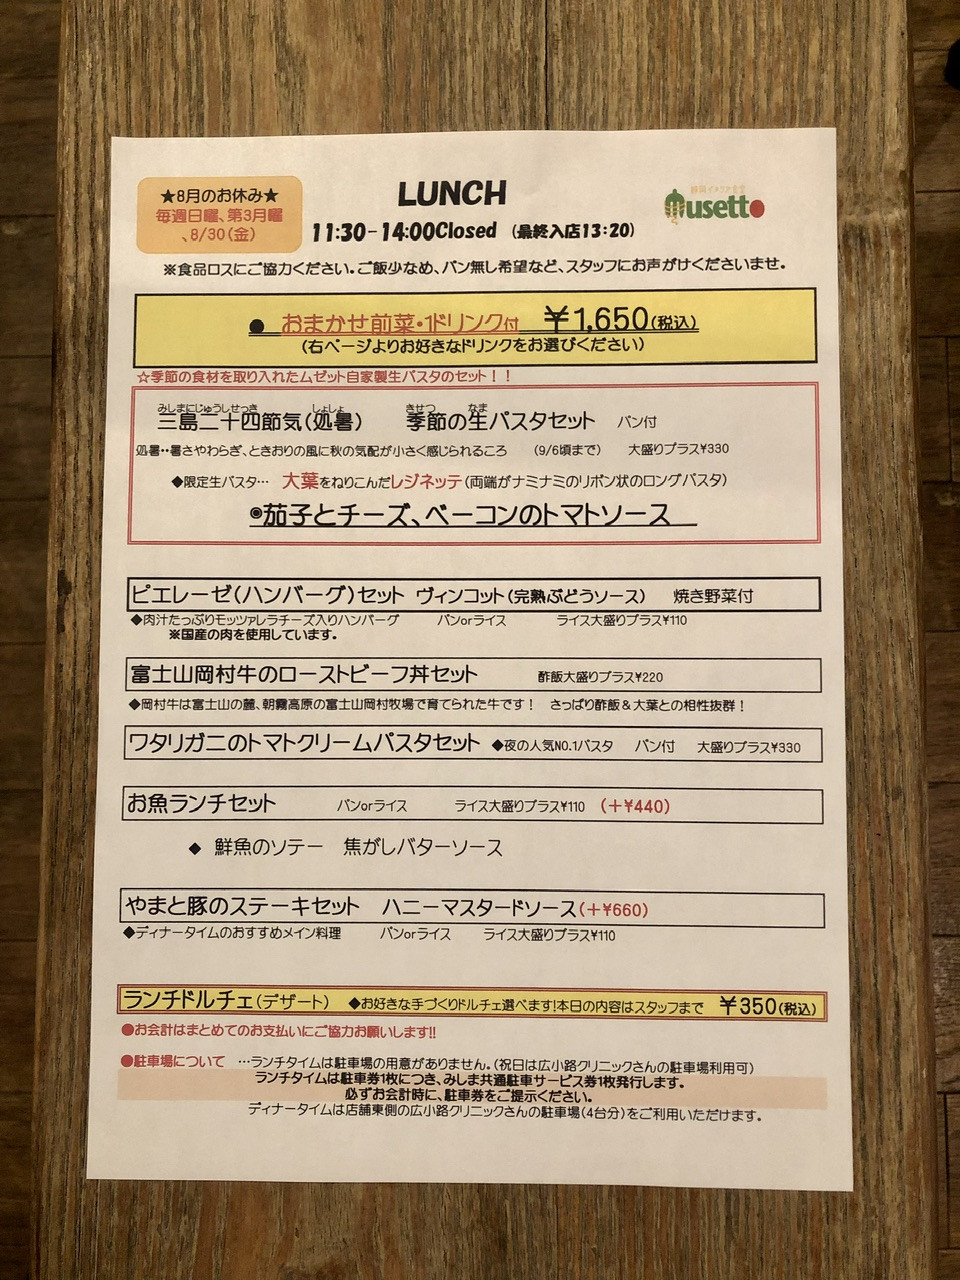 ★8月のお休み★
毎週日曜、第3月曜
、8/30(金)
LUNCH
11:30-14:00Closed (最終入店13:20)
静岡イタリア食堂
Musetto
※食品ロスにご協力ください。ご飯少なめ、パン無し希望など、スタッフにお声がけくださいませ。
● おまかせ前菜・1ドリンク付 ¥1,650(税込)
(右ページよりお好きなドリンクをお選びください)
☆季節の食材を取り入れたムゼット自家製生パスタのセット!!
みしまにじゅうしせっき しょしょ きせつ なま
三島二十四節気(処暑) 季節の生パスタセット パン付
処暑・・暑さやわらぎ、ときおりの風に秋の気配が小さく感じられるころ (9/6頃まで) 大盛りプラス¥330
◆限定生パスタ… 大葉をねりこんだレジネッテ(両端がナミナミのリボン状のロングパスタ)
◉茄子とチーズ、ベーコンのトマトソース
ピエレーゼ(ハンバーグ)セット ヴィンコット(完熟ぶどうソース) 焼き野菜付
◆肉汁たっぷりモッツァレラチーズ入りハンバーグ パンorライス ライス大盛りプラス¥110
※国産の肉を使用しています。
富士山岡村牛のローストビーフ丼セット 酢飯大盛りプラス¥220
◆岡村牛は富士山の麓、朝霧高原の富士山岡村牧場で育てられた牛です! さっぱり酢飯&大葉との相性抜群!
ワタリガニのトマトクリームパスタセット ◆夜の人気NO.1パスタ パン付 大盛りプラス¥330
お魚ランチセット パンorライス ライス大盛りプラス¥110 (+¥440)
◆ 鮮魚のソテー 焦がしバターソース
やまと豚のステーキセット ハニーマスタードソース(+¥660)
◆ディナータイムのおすすめメイン料理 パンorライス ライス大盛りプラス¥110
ランチドルチェ(デザート) ◆お好きな手づくりドルチェ選べます!本日の内容はスタッフまで ¥350(税込)
●お会計はまとめてのお支払いにご協力お願いします!!
●駐車場について …ランチタイムは駐車場の用意がありません。(祝日は広小路クリニックさんの駐車場利用可)
ランチタイムは駐車券1枚につき、みしま共通駐車サービス券1枚発行します。
必ずお会計時に、駐車券をご提示ください。
ディナータイムは店舗東側の広小路クリニックさんの駐車場(4台分)をご利用いただけます。